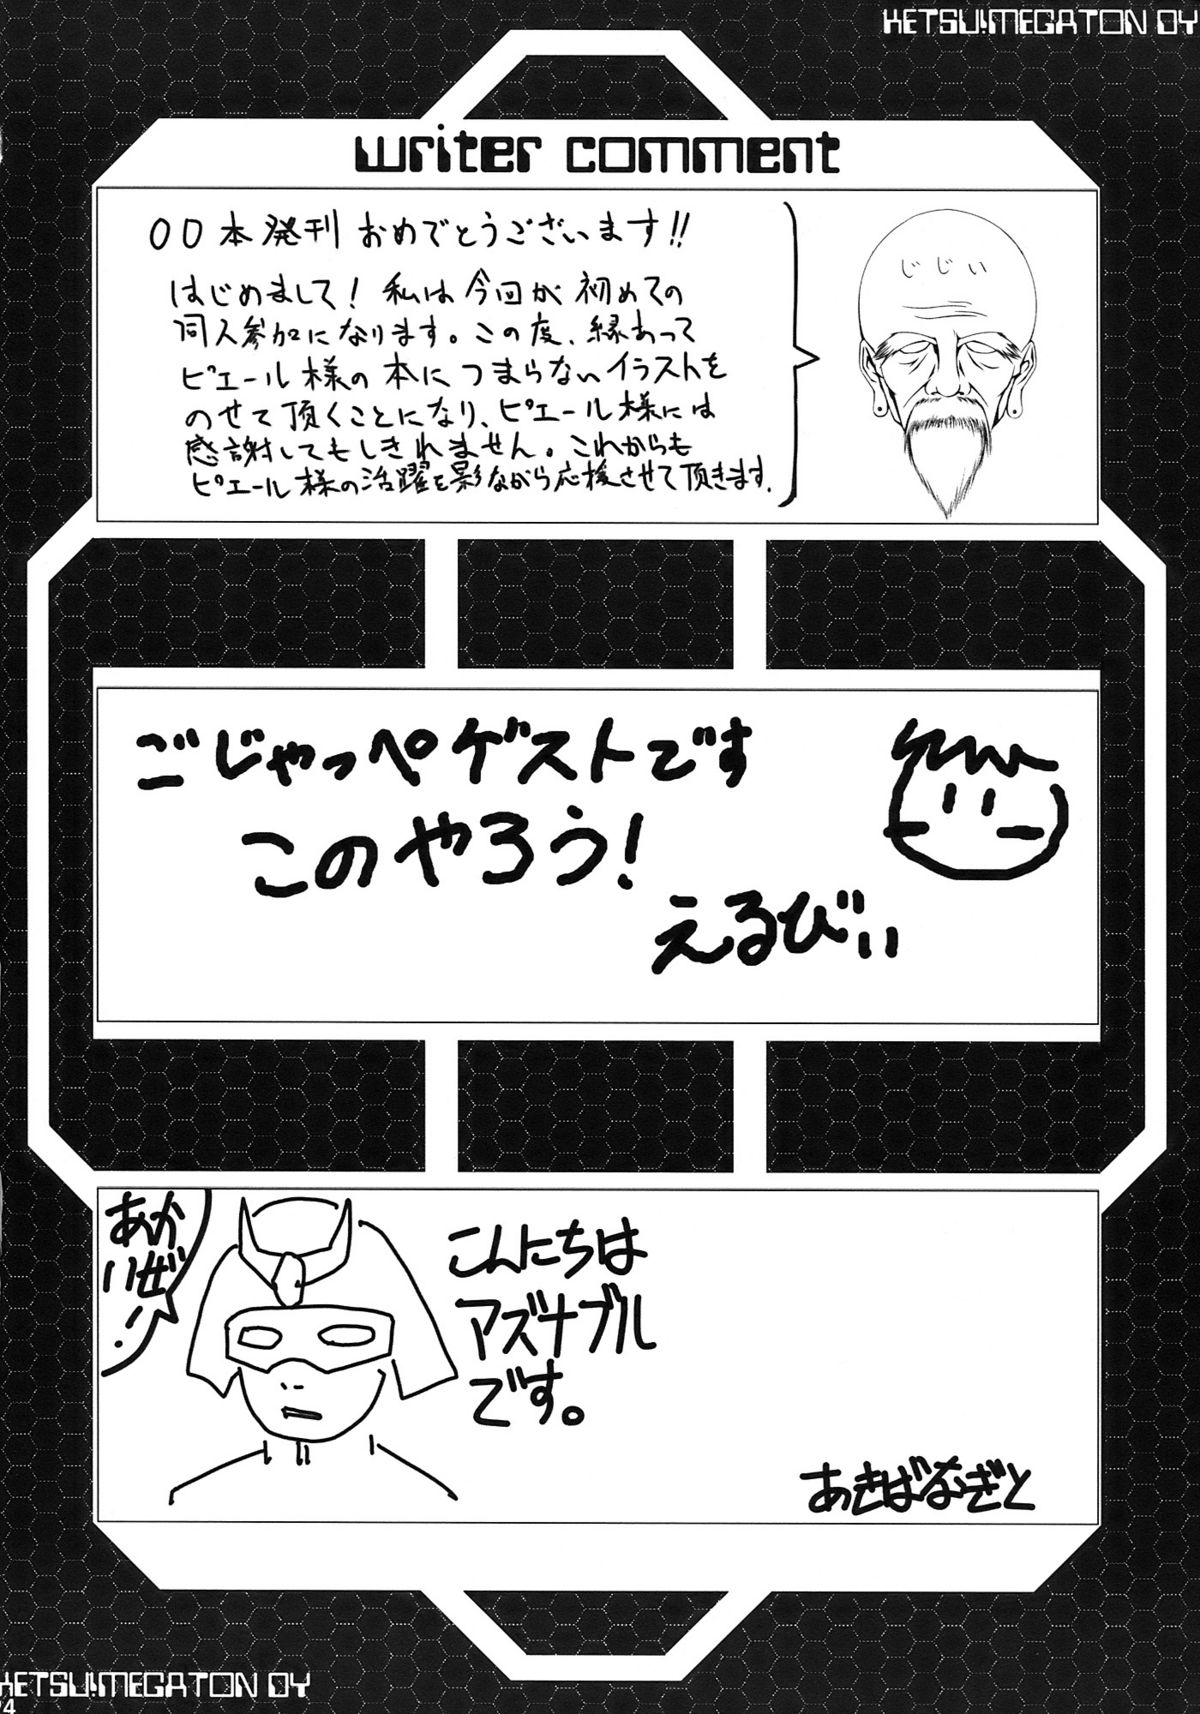 KETSU!MEGATON 04
writer comment
OO本発刊 おめでとうございます!!
はじめまして! 私は今回が初めての
同人参加になります。この度、縁あって
ピエール様の本につまらないイラストを
のせて頂くことになり、ピエール様には
感謝してもしきれません。これからも
ピエール様の活躍を影ながら応援させて頂きます.
じじい
ごじゃっぺゲストです
このやろう!
えるびぃ
あか
いぜ!
こんにちは
アズナブル
です。
あきばなぎと
KETSU!MEGATON 04